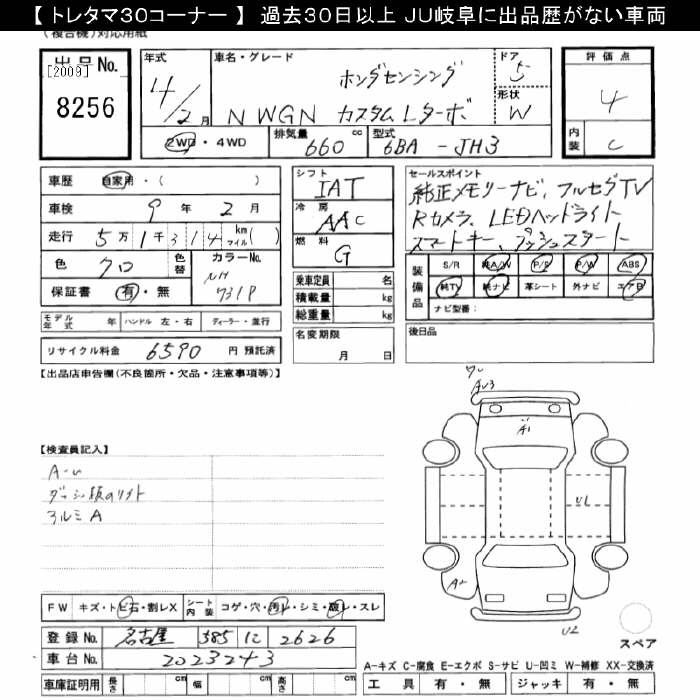 【 トレタマ30コーナー 】 過去30日以上 JU岐阜に出品歴がない車両
(複合機)対応用紙
出品No.
[2009]
8256
年式
4/2月
車名・グレード
ホンダセンシング
N WGN カスタムLターボ
ドア
5
形状
W
評価点
4
内装
C
2WD・4WD
排気量 660 cc
型式 6BA - JH3
車歴 自家用・( )
車検 9年 2月
走行 5万1千314 km マイル( )
色 クロ 色替 カラーNo. NH 731P
保証書 有・無
シフト
IAT
冷房
AAC
燃料
G
乗車定員 名
積載量 kg
総重量 kg
名変期限
月 日
セールスポイント
純正メモリーナビ、フルセグTV
Rカメラ、LEDヘッドライト
スマートキー、プッシュスタート
装備品
S/R 純A/W P/S P/W ABS
純TV 純ナビ 革シート 外ナビ エアB
ナビ型番:
後日品
モデル年式 年 ハンドル 左・右 ディーラー・並行
リサイクル料金 6590 円 預託済
【出品店申告欄(不良箇所・欠品・注意事項等)】
【検査員記入】
A-U
ダッシュ板のリフト
アルミ A
AU3
A1
UL
U2
FW キズ・トビ石・割レX シート内装 コゲ・穴・汚レ・シミ・破レ・スレ
登録No. 名古屋 585 に 2626
車台No. 2023243
スペア
A-キズ C-腐食 E-エクボ S-サビ U-凹ミ W-補修 XX-交換済
車庫証明用 長さ cm 幅 cm 高さ cm
工具 有・無 ジャッキ 有・無